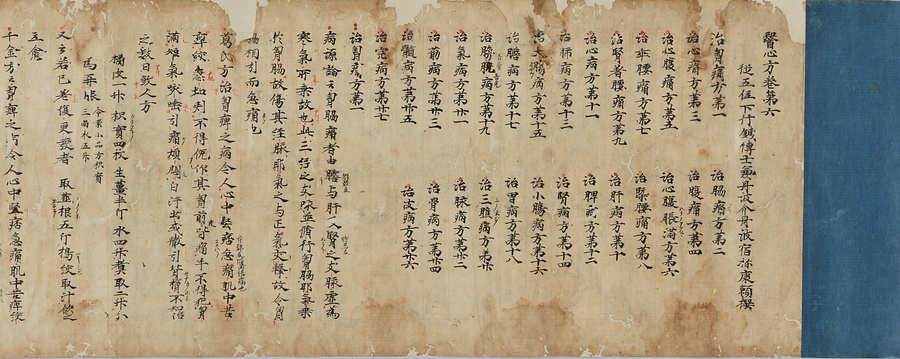 醫心方卷第六
從五位下行鍼博士兼丹波介丹波宿祢康頼撰
治胷痛方第一 治脇痛方第二
治心痛方第三 治腹痛方第四
治心腹痛方第五 治心腹脹滿方第六
治卒腰痛方第七 治䐴腰痛方第八
治腎著腰痛方第九 治肝病方第十
治心病方第十一 治脾病方第十二
治肺病方第十三 治腎病方第十四
治大腸病方第十五 治小腸病方第十六
治膽病方第十七 治胃病方第十八
治膀胱病方第十九 治三膲病方第廿
治氣病方第廿一 治脉病方第廿二
治筋病方第廿三 治骨病方第廿四
治髓病方第廿五 治皮病方第廿六
治宍病方第廿七
治胷痛方第一
病源論云胷脇痛者由膽与肝及腎之支脉虛為
寒氣所乘故也此三經之支脉並脩行胷脇邪氣乘
於胷脇故傷其經脉邪氣之与正氣交擊故令胷
脇相引而急痛也
葛氏方治胷痺之病令人心中堅痞急痛肌中苦
痺絞急如刺不得俛仰其胷前皮皆痛手不得犯胷
滿短氣咳嗽引痛煩悶自汗出或徹引背膂不即治
之數日敎人方
橘皮一升 枳實四枚 生薑半斤 水四升煑取二升分
為再服
又云若已差復更發者 取韮根五斤搗絞取汁飲之
立愈
千金方云胷痺之病令人心中堅痞急痛肌中苦痺絞